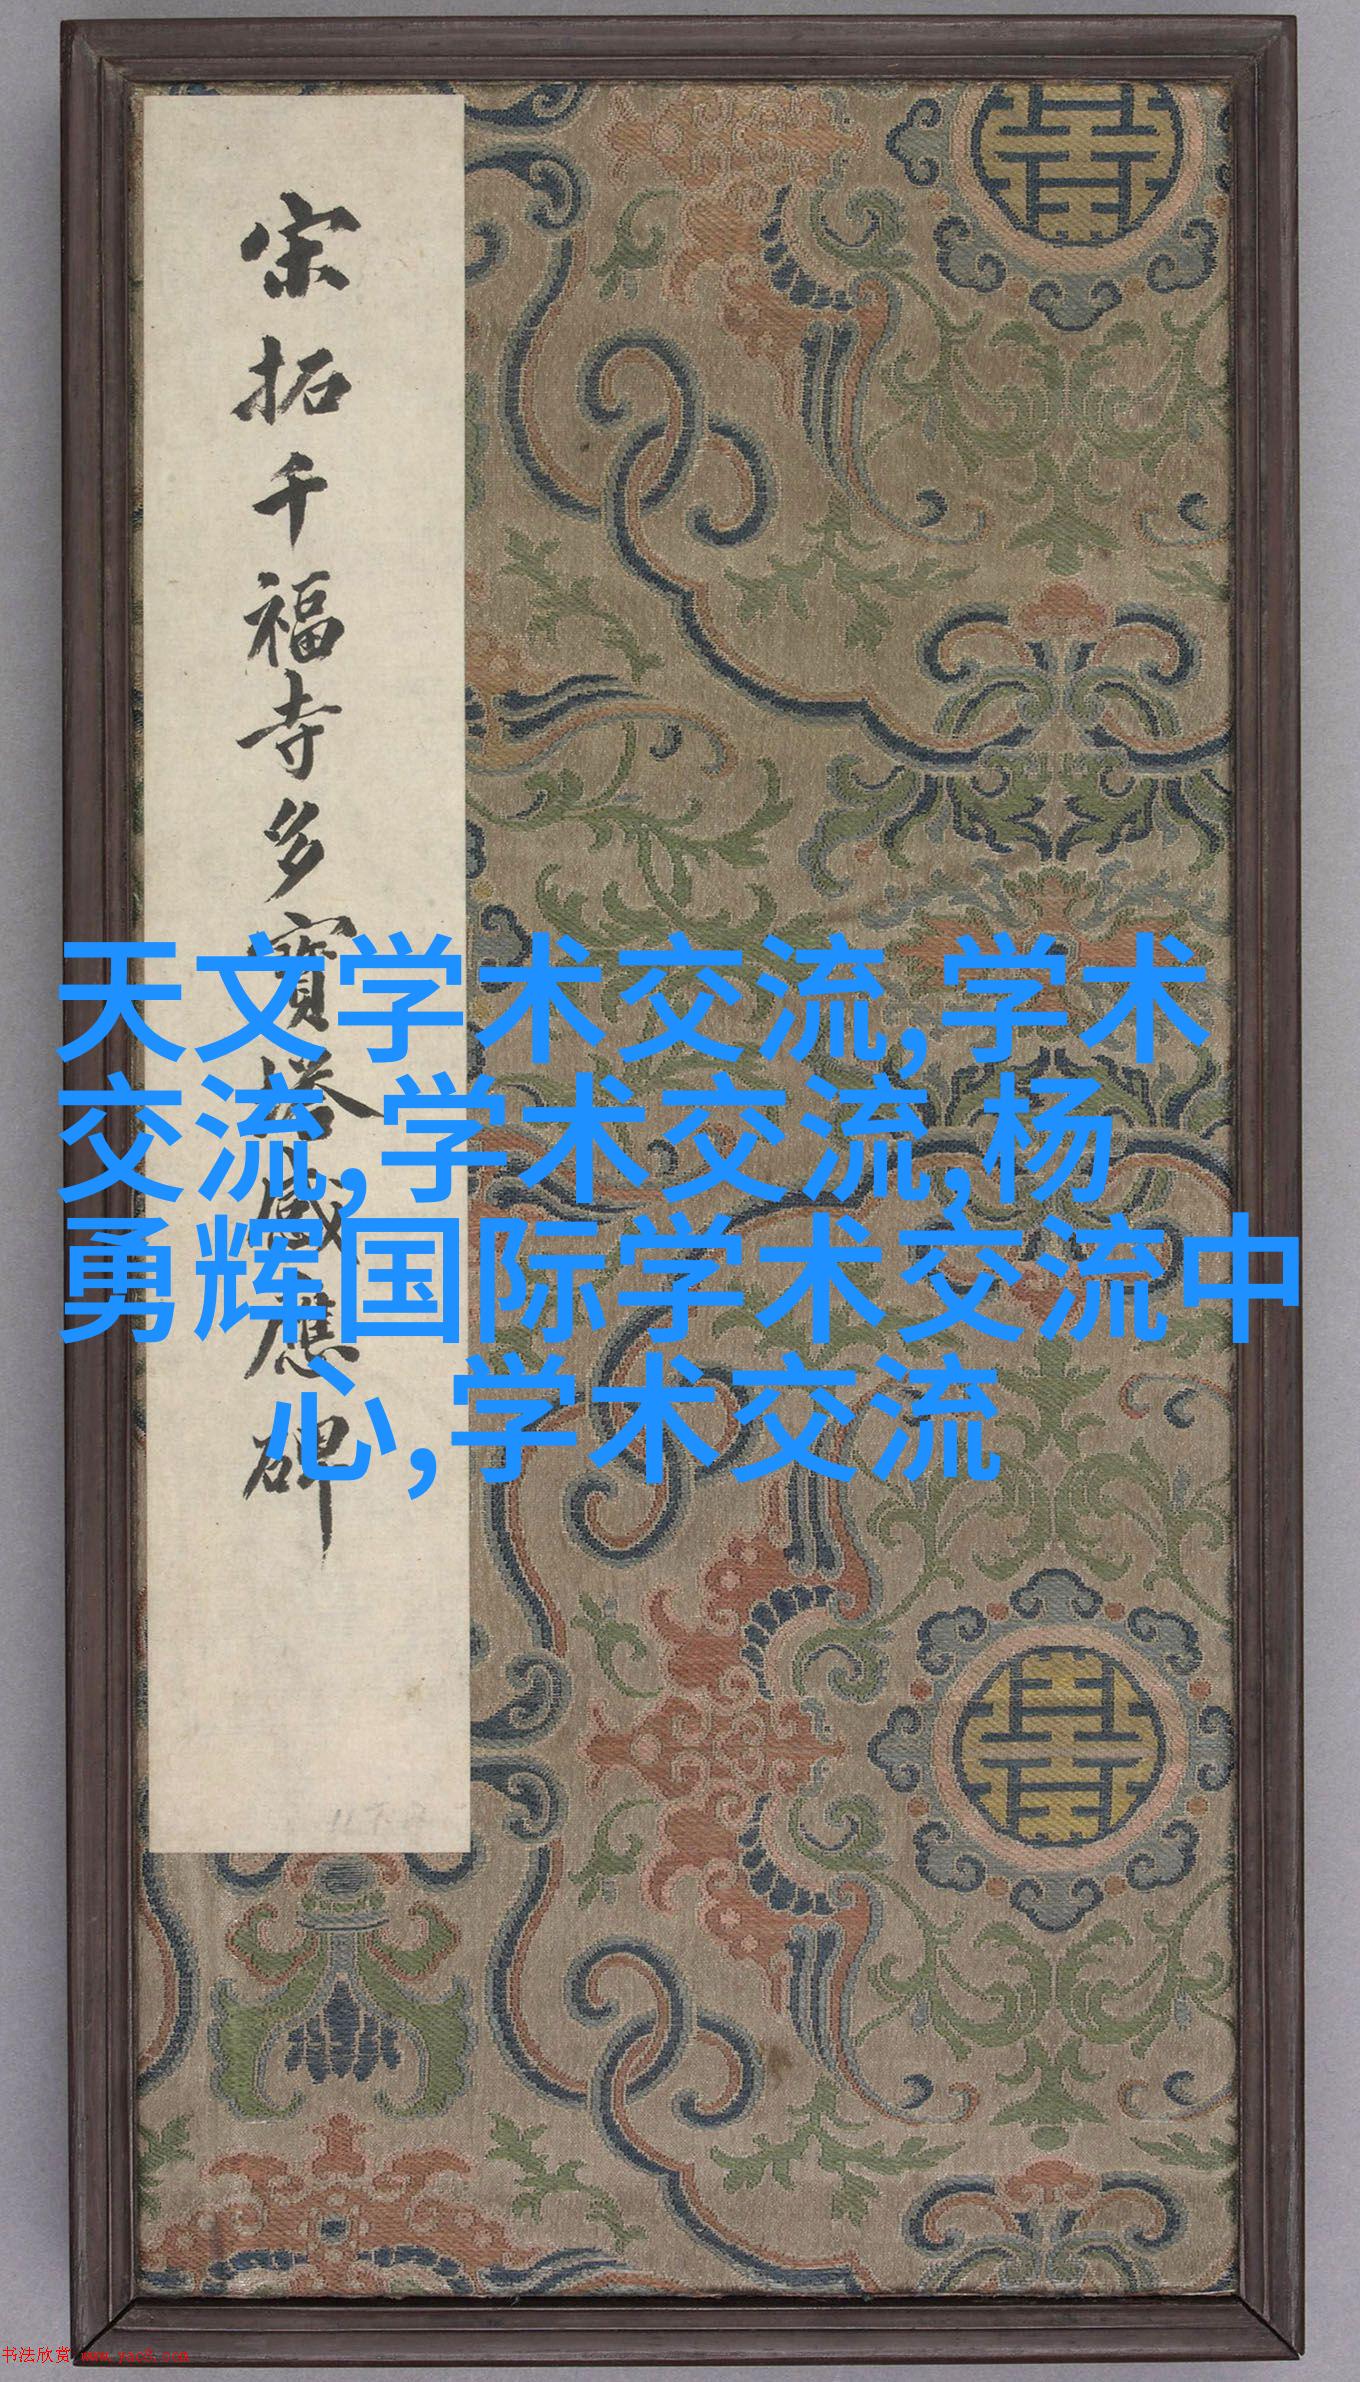 宋拓千福寺多寶塔感應碑
天文学术交流,学术
交流,学术交流,杨
勇辉国际学术交流中
心,学术交流
书法欣赏 www.yac8.com